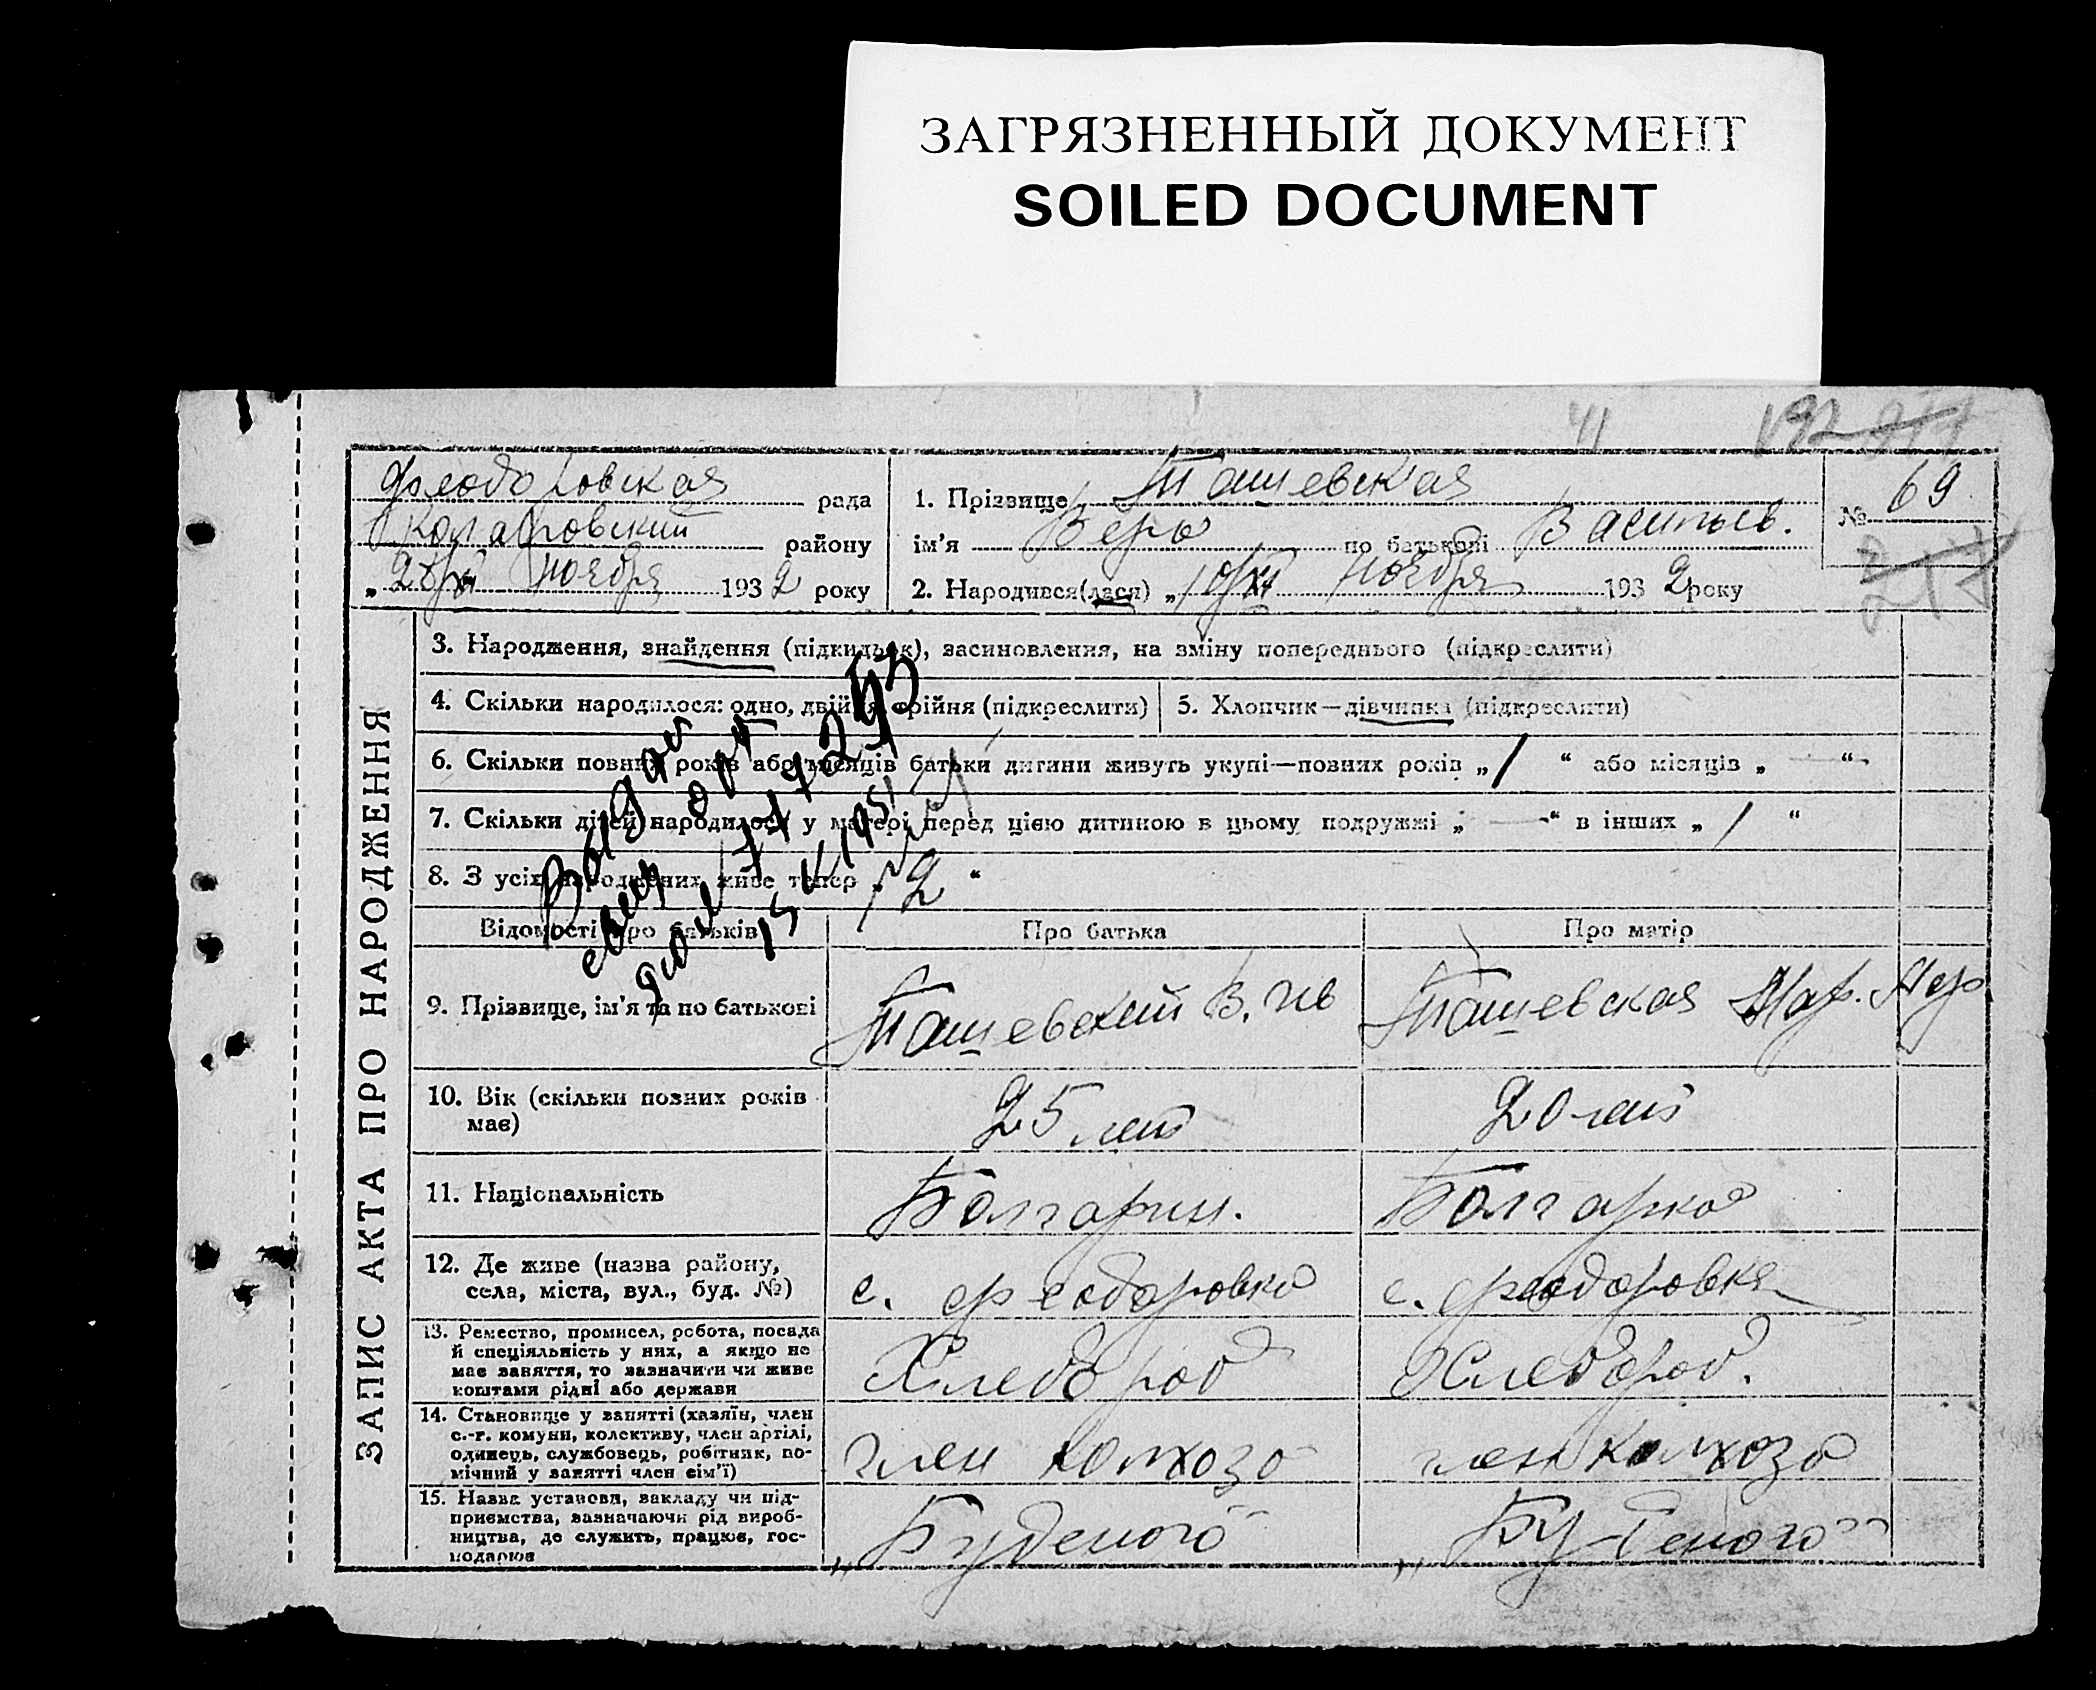 ЗАГРЯЗНЕННЫЙ ДОКУМЕНТ
SOILED DOCUMENT
41 192
Феодоровская рада
Коларовский району
„28/XI ноября 1932 року
1. Прізвище Ташевская
ім'я Вера по батькові Васильев.
2. Народився(лася) „10/XI ноября 1932 року
№ 69
217
ЗАПИС АКТА ПРО НАРОДЖЕННЯ
3. Народження, знайдення (підкидьок), засиновлення, на зміну попереднього (підкреслити)
4. Скільки народилося: одно, двійня, трійня (підкреслити)
5. Хлопчик—дівчинка (підкреслити)
6. Скільки повних років або місяців батьки дитини живуть укупі—повних років „1“ або місяців „—“
7. Скільки дітей народилося у матері перед цією дитиною в цьому подружжі „—“ в інших „1“
8. З усіх народжених живе тепер „2“
Відомості про батьків
Про батька
Про матір
9. Прізвище, ім'я та по батькові
Ташевский В. Ив
Ташевская Мар.
10. Вік (скільки повних років
має)
25 лет
20 лет
11. Національність
Болгарин.
Болгарка
12. Де живе (назва району,
села, міста, вул., буд. №)
с. Феодоровка
с. Феодоровка
13. Ремество, промисел, робота, посада
й спеціяльність у них, а якщо не
має заняття, то зазначити чи живе
коштами рідні або держави
Хлебороб
Хлебороб.
14. Становище у занятті (хазяїн, член
с.-г. комуни, колективу, член артілі,
одинець, службовець, робітник, по-
мічний у занятті член сім'ї)
член колхоза
член колхоза
15. Назва установи, закладу чи під-
приємства, зазначаючи рід вироб-
ництва, де служить, працює, гос-
подарює
„Буденого“
„Буденого“
Выдат